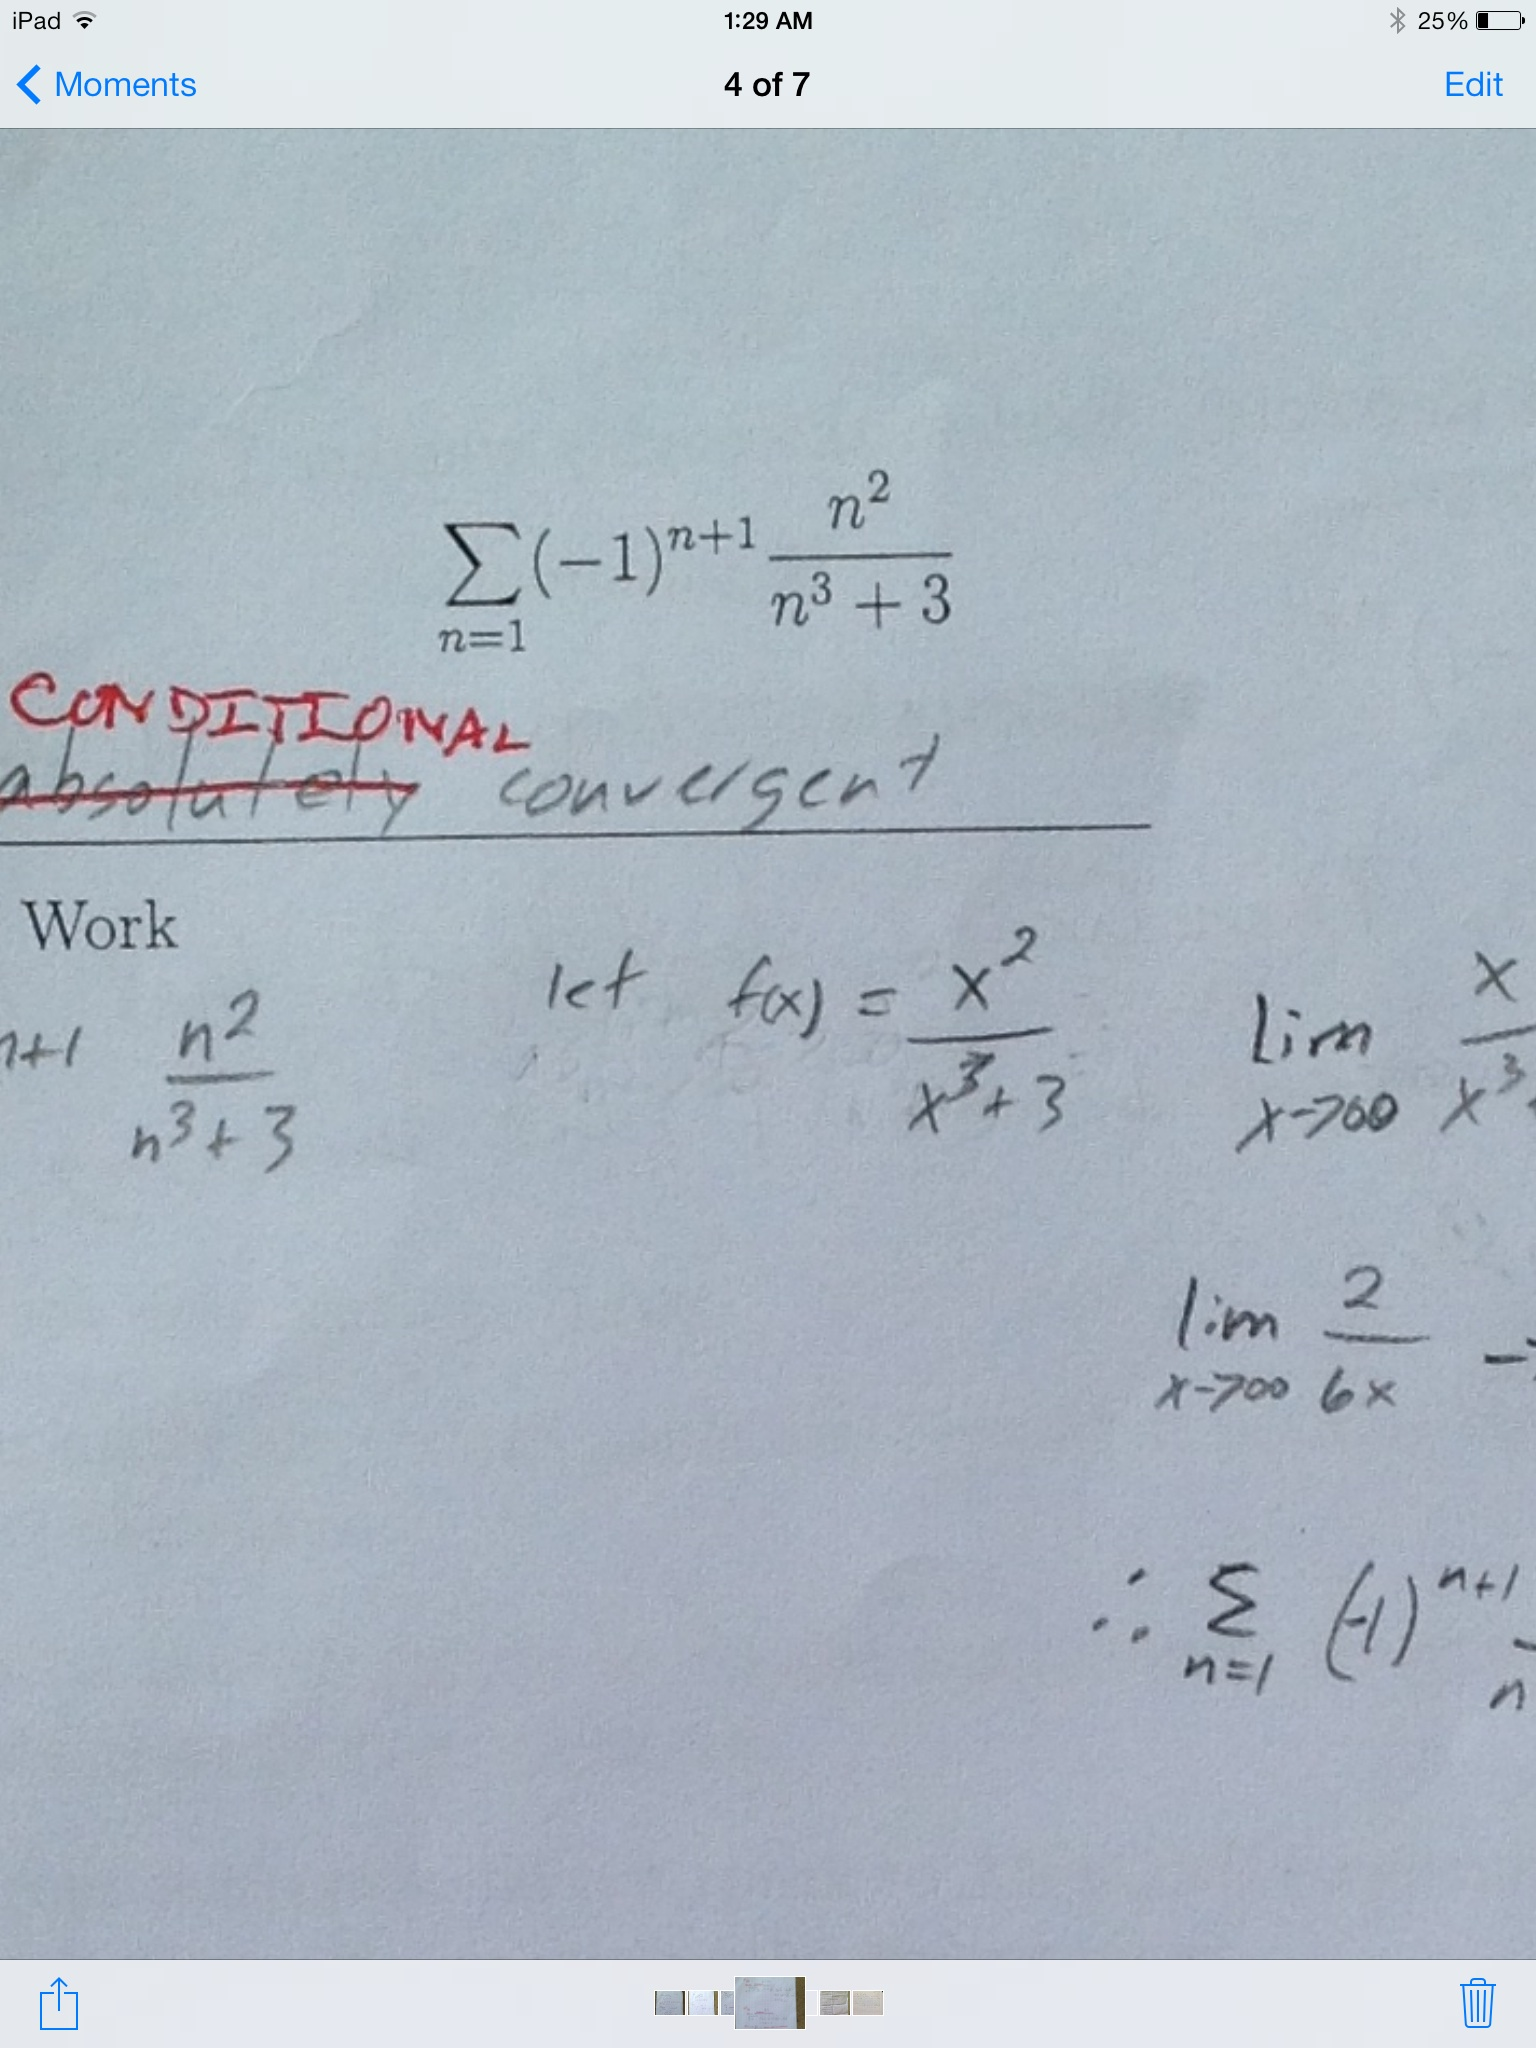 iPad 1:29 AM 25%
Moments 4 of 7 Edit
∑ (−1)^{n+1} n²/(n³ + 3)
n=1
CONDITIONAL
absolutely convergent
Work
n+1 n²/(n³+3) let f(x) = x²/(x³+3) lim x→∞ x/x³
lim x→∞ 2/6x →
∴ ∑ n=1 (-1)^{n+1} /n